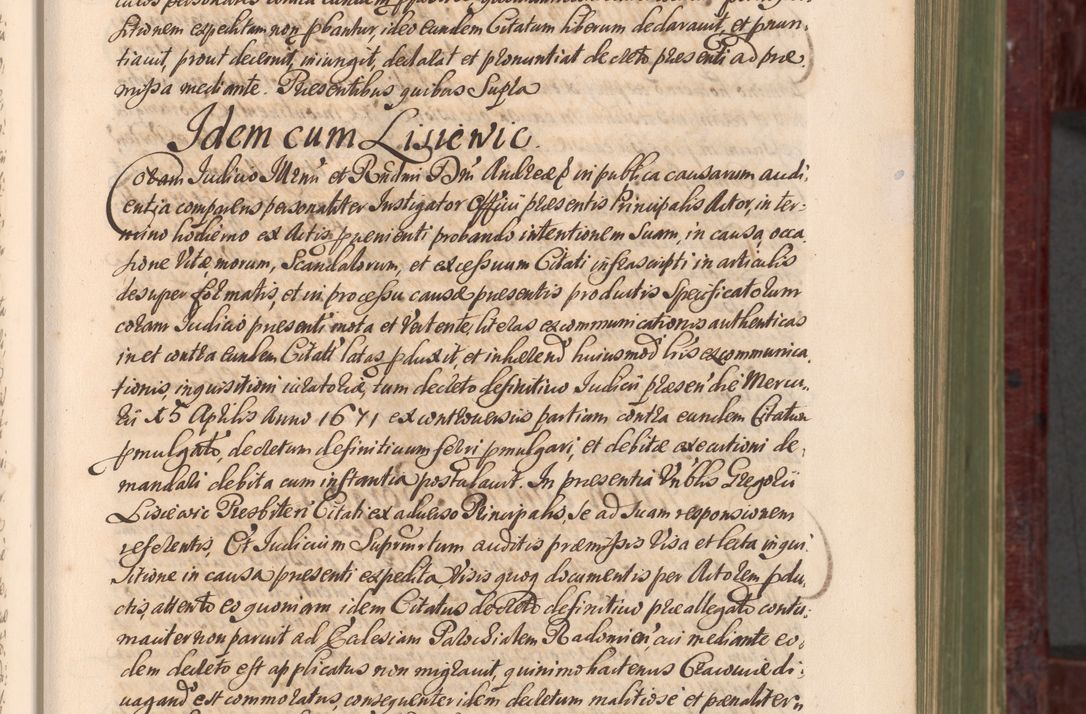 sitionem expeditam non probantur, ideo eundem Citatum liberum declaravit, et pnun
tiavit, prout decernit, iniungit, declarat et pronuntiat decreto præsenti ad præ
missa mediante. Præsentibus quibus Supra
Idem cum Lisiewic.
Coram Judicio Illmi et Rndmi Dni Andreæ E in publica causarum audi,
entia comparens personaliter Instigator Officii præsentis Principalis Actor, in ter:
mino hodierno ex Actis pvenienti probando intentionem Suam, in causa, occa
sione Vitæ morum, Scandalorum, et excessuum Citati infrascripti in articulis
desuper formatis, et in processu causæ præsentis productis Specificatorum
coram Judicio præsenti mota et Vertente, literas excommunicationis authenticas
in et contra eundem Citatū latas pduxit, et inhærend huiusmod lris excommunica,
tionis, inquisitioni iuratoriæ, tum decreto definitivo Judicii præsen die Mercu
rii 15 Aprilis Anno 1671 ex controversiis partium contra eundem Citatum
pmulgato, decretum definitivum ferri pmulgari, et debitæ executioni de,
mandari debita cum instantia postulavit. In præsentia Vnblis Gregorii
Lisiewic Presbiteri Citati ex adverso Principalis, se ad Suam responsionem
referentis, Et Judicium Supramtum auditis præmissis Visa et lecta inqui
sitione in causa præsenti expedita, Visis quoq documentis per Actorem pdu,
ctis, attento eo quoniam idem Citatus decreto definitivo præallegato contu:
maciter non paruit ad Ecclesiam Parochialem Radomien, cui mediante eo,
dem decreto est applicatus non migravit, quinimo hactenus Cracoviæ di,
uagand est commoratus, consequenter idem decretum malitiose et pænaliter